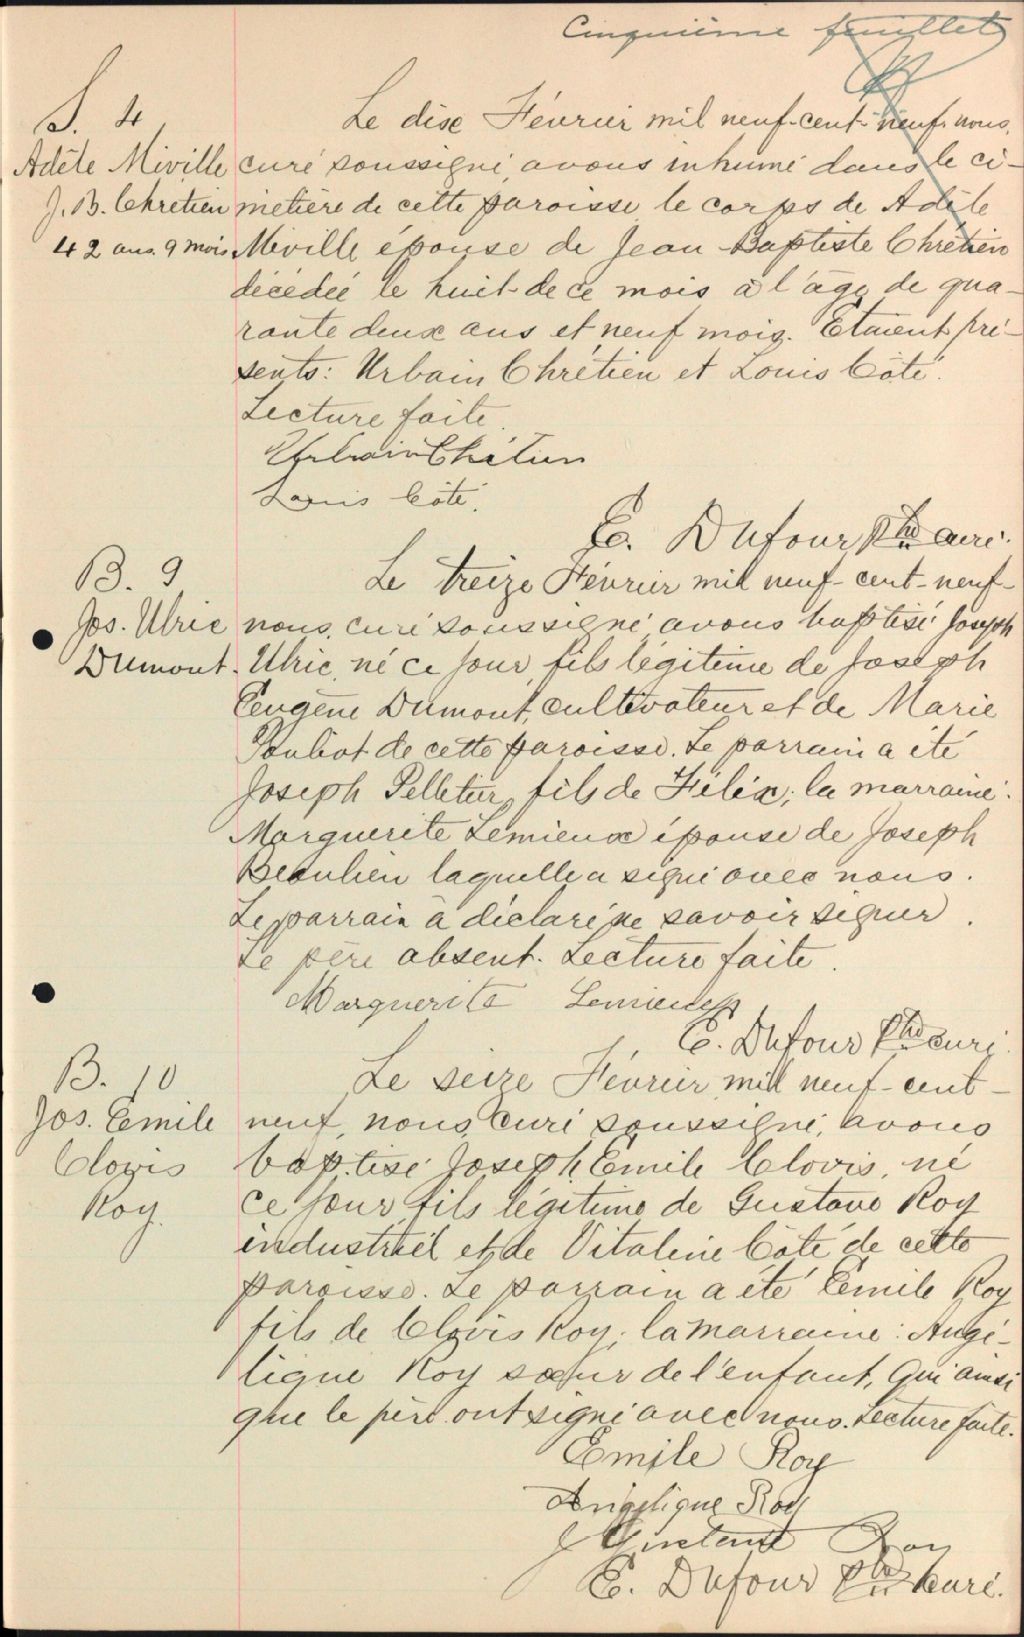 Cinquième feuillet
S. 4
Adèle Miville
J. B. Chretien
42 ans. 9 mois
Le dix Février mil neuf-cent-neuf, nous,
curé soussigné, avons inhumé dans le ci-
metière de cette paroisse le corps de Adèle
Miville épouse de Jean-Baptiste Chrétien
décédée le huit de ce mois à l'âge de qua-
rante deux ans et neuf mois. Etaient pré-
sents: Urbain Chrétien et Louis Côté.
Lecture faite.
Urbain Chrétien
Louis Côté.
E. Dufour Ptre curé.
B. 9
Jos. Ulric
Dumont.
Le treize Février mil neuf-cent-neuf-
nous, curé soussigné avons baptisé Joseph
Ulric, né ce jour, fils légitime de Joseph
Eugène Dumont, cultivateur et de Marie
Pouliot de cette paroisse. Le parrain a été
Joseph Pelletier, fils de Félix; la marraine:
Marguerite Lemieux épouse de Joseph
Beaulieu laquelle a signé avec nous.
Le parrain a déclaré ne savoir signer.
Le père absent. Lecture faite.
Marguerite Lemieux
E. Dufour Ptre curé.
B. 10
Jos. Emile
Clovis
Roy.
Le seize Février, mil neuf-cent-
neuf, nous, curé soussigné, avons
baptisé Joseph Emile Clovis, né
ce jour, fils légitime de Gustave Roy
industriel et de Vitaline Côté de cette
paroisse. Le parrain a été Emile Roy
fils de Clovis Roy; la marraine: Angé-
lique Roy sœur de l'enfant, qui ainsi
que le père ont signé avec nous. Lecture faite.
Emile Roy
Angelique Roy
J Gustave Roy
E. Dufour Ptre curé.